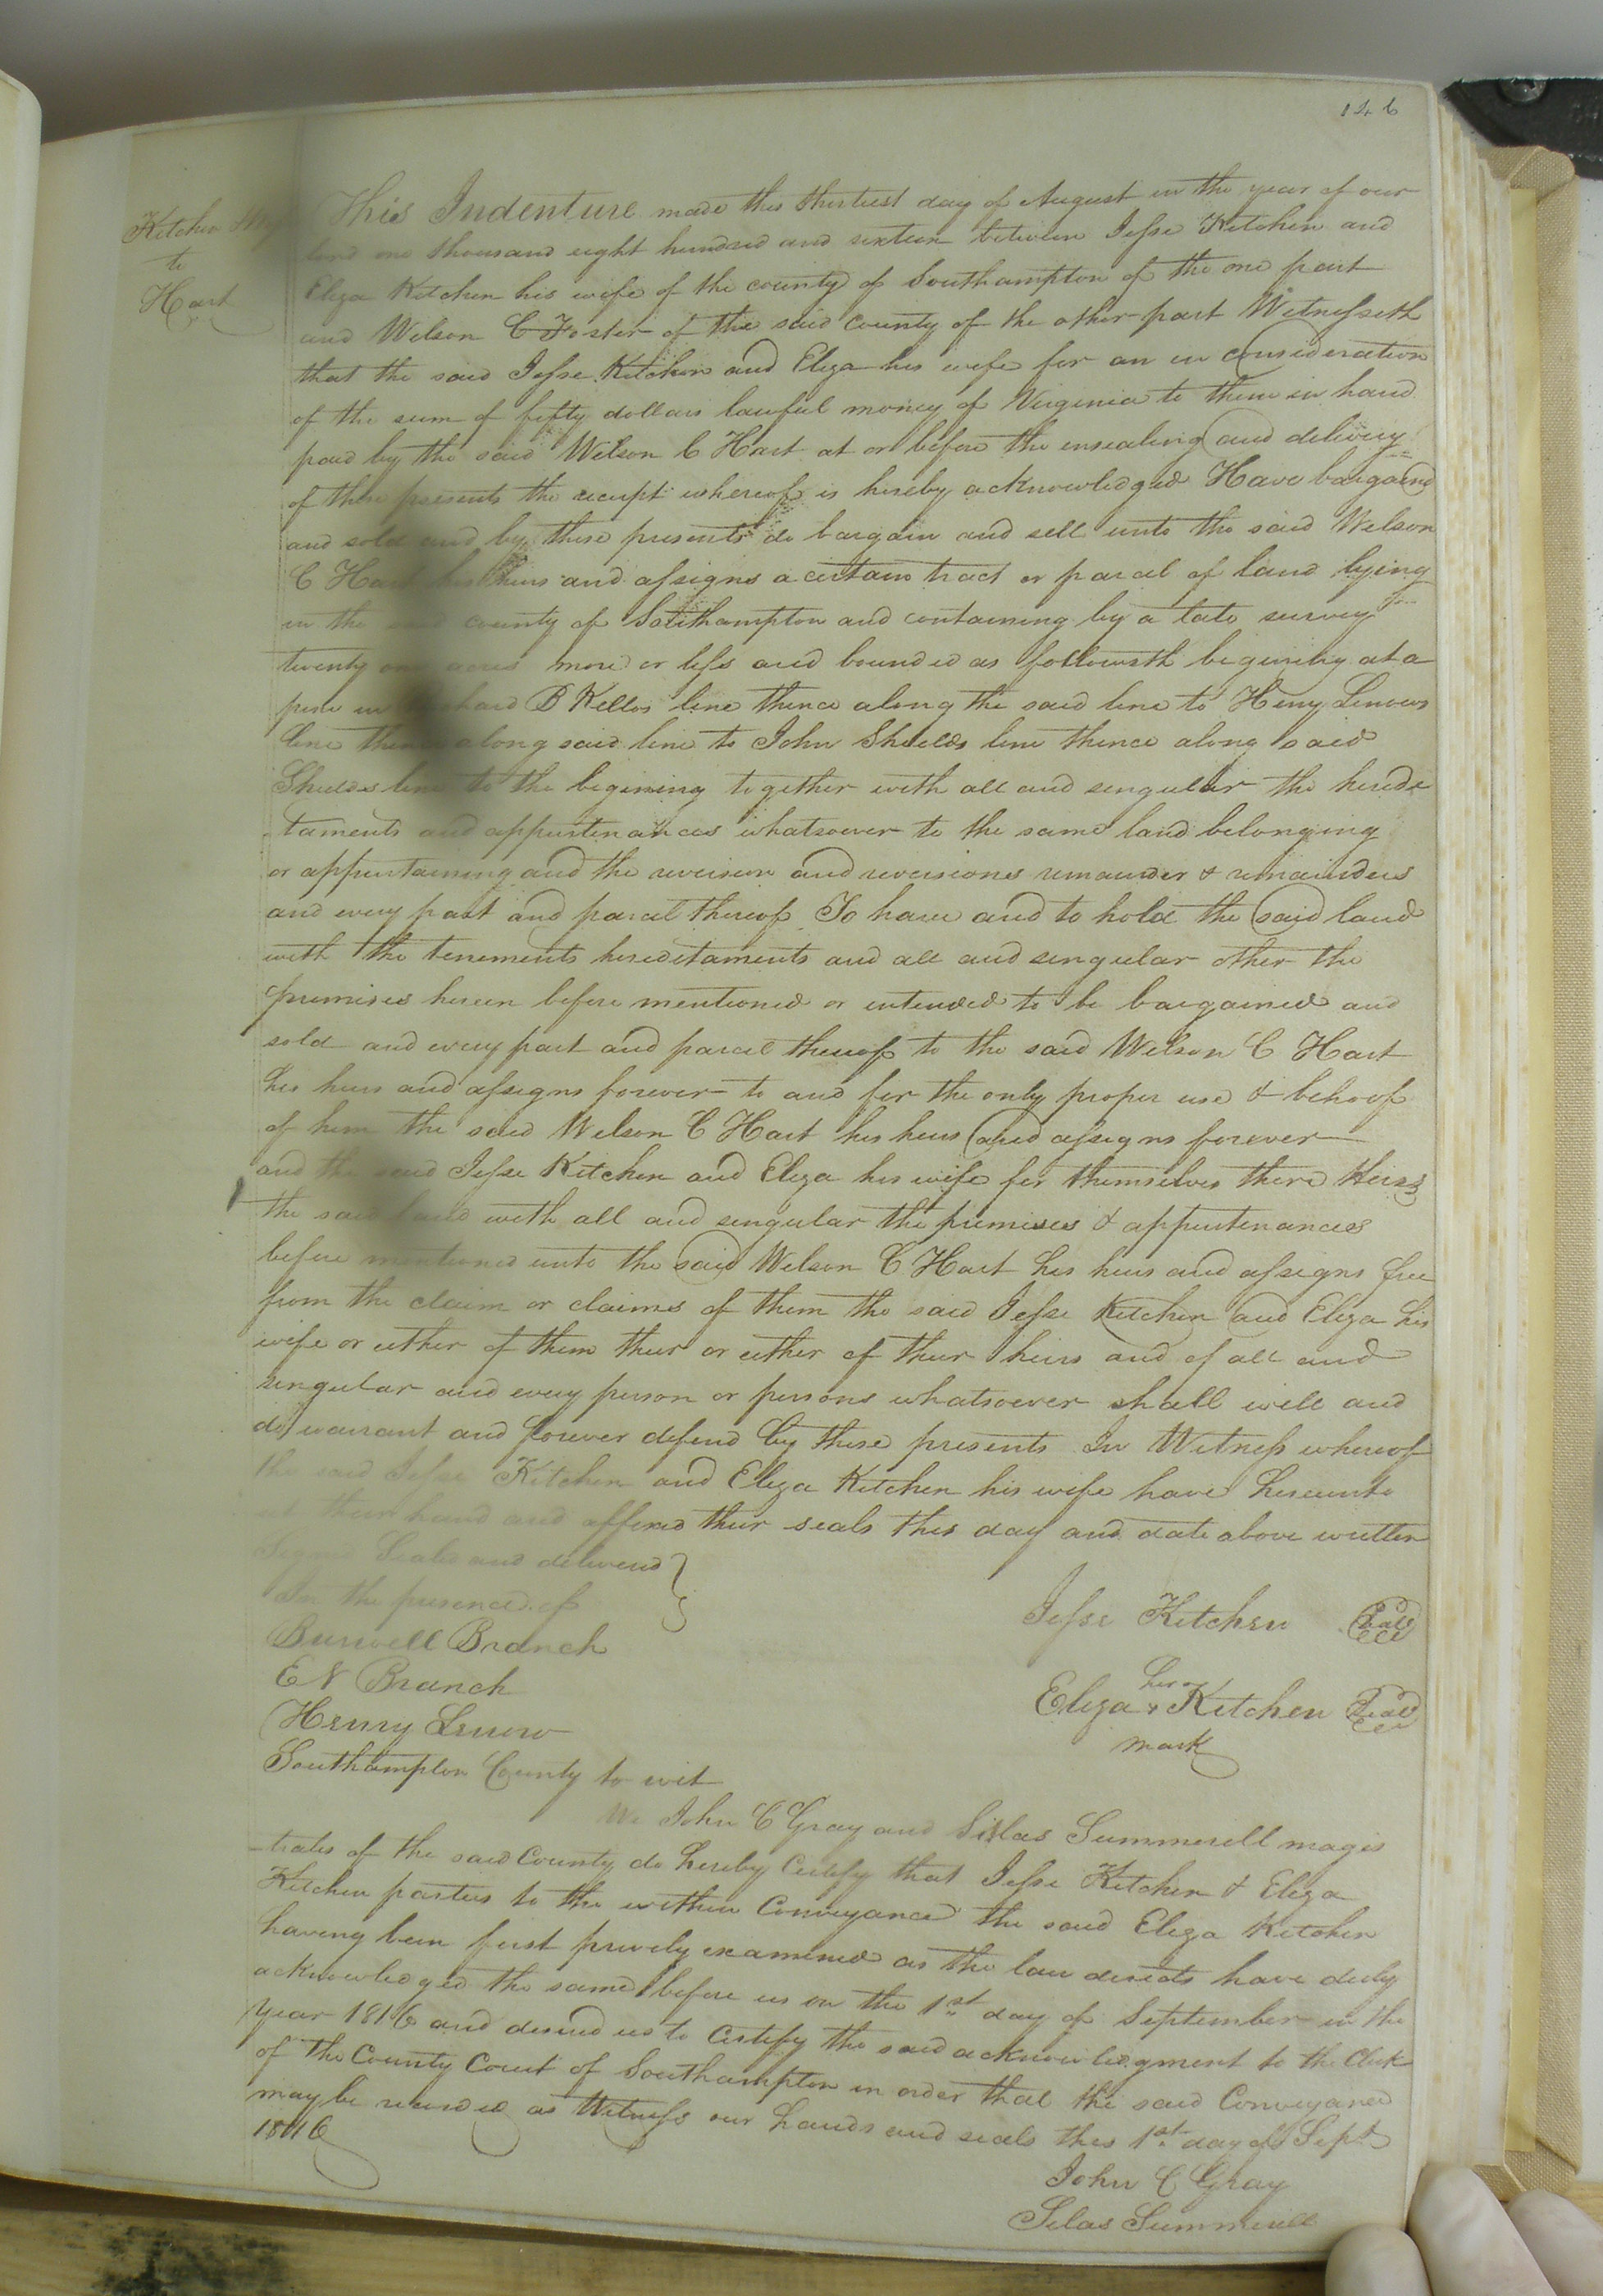 146
Kitchen
to
Hart
This Indenture made this thirtiest day of August in the year of our
lord one thousand eight hundred and sixteen between Jesse Kitchen and
Eliza Kitchen his wife of the county of Southampton of the one part
and Wilson C Foster of the said county of the other part Witnesseth
that the said Jesse Kitchen and Eliza his wife for an in consideration
of the sum of fifty dollars lawful money of Virginia to them in hand
paid by the said Wilson C Hart at or before the ensealing and delivery
of these presents the receipt whereof is hereby acknowledged Have bargaind
and sold and by these presents do bargain and sell unto the said Wilson
C Hart his heirs and assigns a certain tract or parcel of land lying
in the said county of Southampton and containing by a late survey
twenty one acres more or less and bounded as followeth begining at a
pine in Richard B Kellos line thence along the said line to Henry Lenows
line thence along said line to John Shields line thence along said
Shields line to the begining together with all and singular the heredi
taments and appurtenances whatsoever to the same land belonging
or appurtaining and the revision and revisiones remainder & remainders
and every part and parcel thereof To have and to hold the said land
with the tenements hereditaments and all and singular other the
premises herein before mentioned or intended to be bargained and
sold and every part and parcel thereof to the said Wilson C Hart
his heirs and assigns forever to and for the only proper use & behoof
of him the said Wilson C Hart his heirs and assigns forever
and the said Jesse Kitchen and Eliza his wife for themselves there Heirs
the said land with all and singular the premises & appurtenances
before mentioned unto the said Wilson C Hart his heirs and assigns free
from the claim or claims of them the said Jesse Kitchen and Eliza his
wife or either of them their or either of their heirs and of all and
singular and every person or persons whatsoever shall will and
do warrant and forever defend by these presents In Witness whereof
the said Jesse Kitchen and Eliza Kitchen his wife have hereunto
set their hand and affixed their seals this day and date above written
Signed Sealed and deliverd
In the presence of
Jesse Kitchen Seal
Burwell Branch
E N Branch
her
Eliza x Kitchen Seal
mark
Henry Lenow
Southampton County to wit
We John C Gray and Silas Summerell magis
-trates of the said County do hereby Certify that Jesse Kitchen & Eliza
Kitchen parties to the within Conveyance the said Eliza Kitchen
having been first privily examined as the law directs have duly
acknowledged the same before us on the 1st day of September in the
year 1816 and desired us to Certify the said acknowledgment to the Clerk
of the County Court of Southampton in order that the said Conveyance
may be recorded as Witness our hands and seals this 1st day of Sept
1816
John C Gray
Silas Summerell